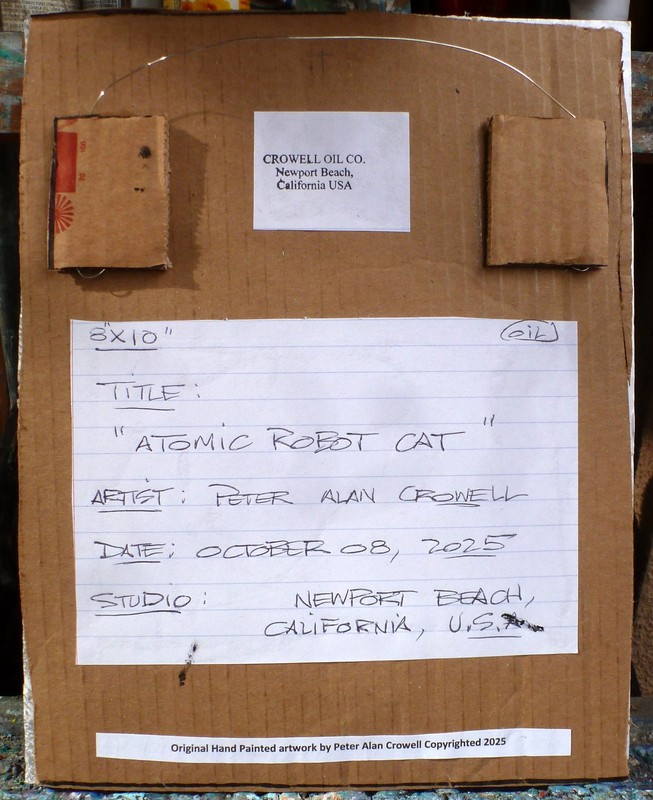 CROWELL OIL CO.
Newport Beach,
California USA
8"X10"
OIL
TITLE:
"ATOMIC ROBOT CAT"
ARTIST: PETER ALAN CROWELL
DATE: OCTOBER 08, 2025
STUDIO: NEWPORT BEACH,
CALIFORNIA, U.S.A.
Original Hand Painted artwork by Peter Alan Crowell Copyrighted 2025